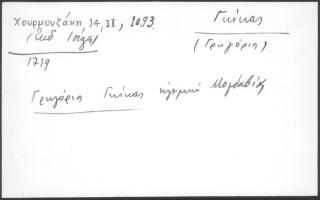 Χουρμουζάκη, 14, II, 1093
Γκίκας
(Γρηγόριος)
1739
Γρηγόριος Γκίκας ηγεμών Μολδαβίας